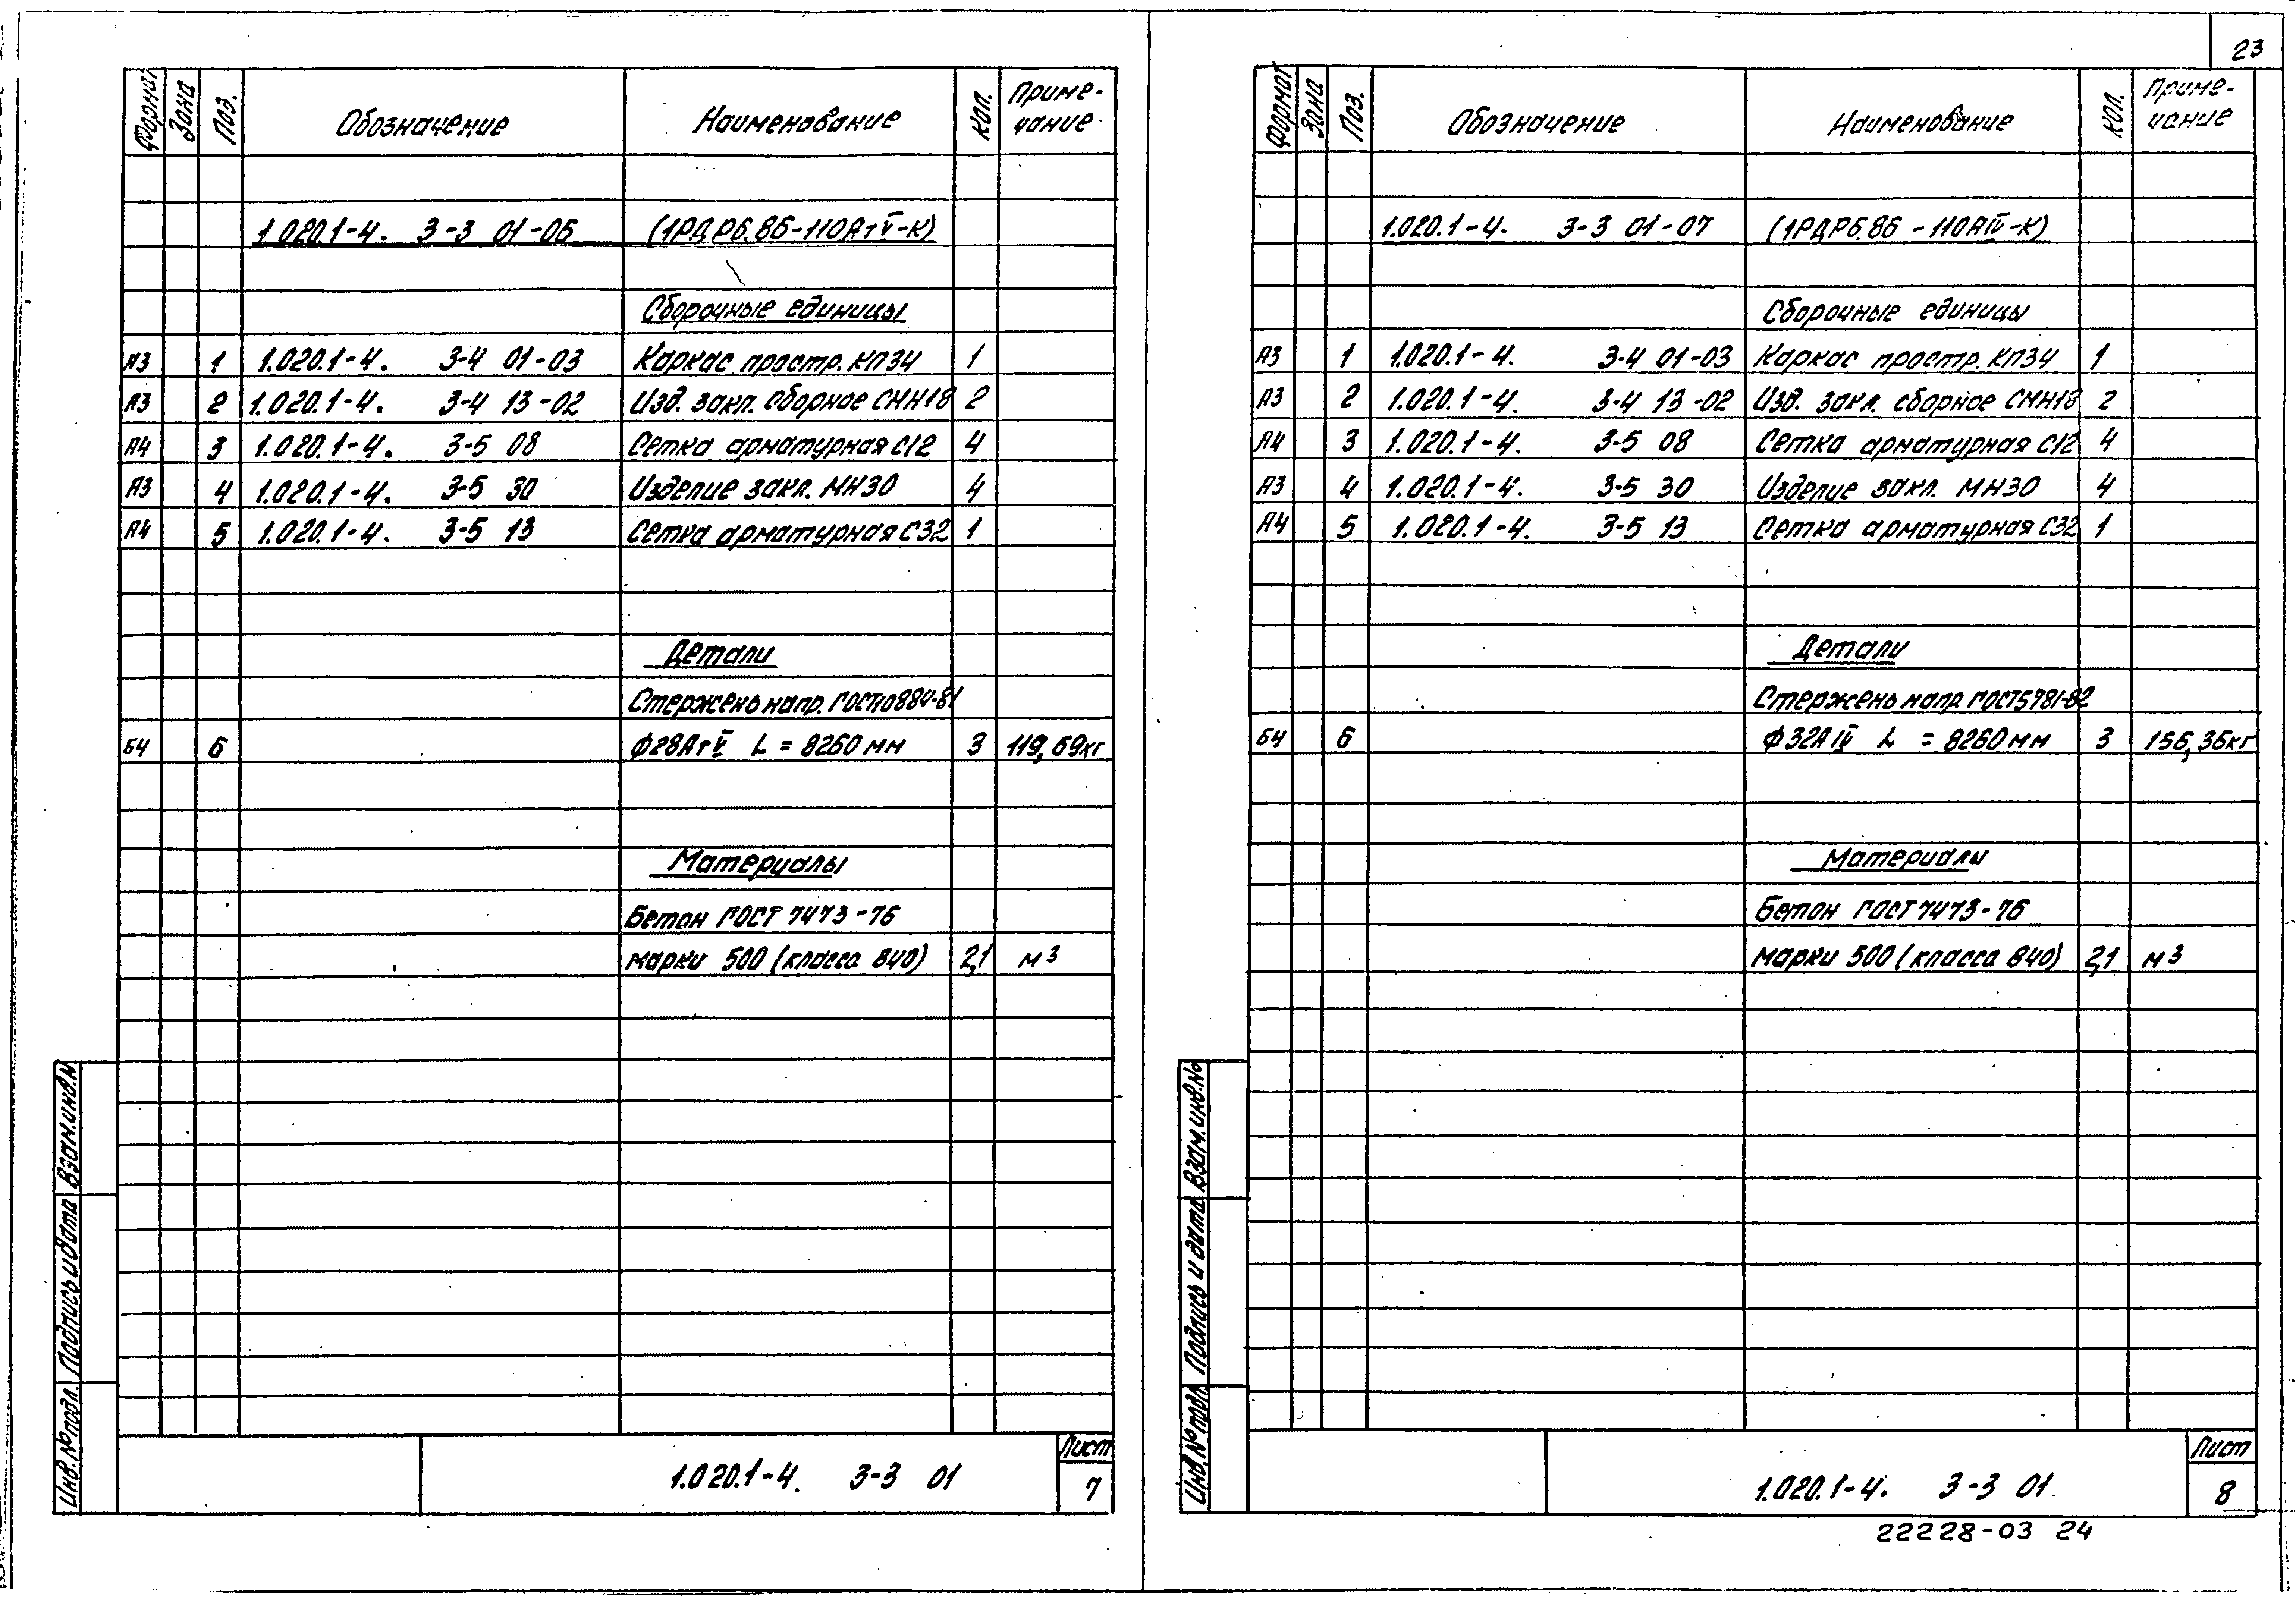 23
Формат Зона Поз. Обозначение Наименование Кол. Приме-
чание
1.020.1-4. 3-3 01-06 (1РДР6.86-110АтV-К)
Сборочные единицы
А3 1 1.020.1-4. 3-4 01-03 Каркас простр. КП34 1
А3 2 1.020.1-4. 3-4 13-02 Изд. закл. сборное СМН18 2
А4 3 1.020.1-4. 3-5 08 Сетка арматурная С12 4
А3 4 1.020.1-4. 3-5 30 Изделие закл. МН30 4
А4 5 1.020.1-4. 3-5 13 Сетка арматурная С32 1
Детали
Стержень напр. ГОСТ10884-81
Б4 6 ф28АтV L = 8260 мм 3 119,69кг
Материалы
Бетон ГОСТ 7473-76
марки 500 (класса В40) 2,1 м3
Взам.инв.№
Подпись и дата
Инв.№подл.
1.020.1-4. 3-3 01
Лист
7
Формат Зона Поз. Обозначение Наименование Кол. Приме-
чание
1.020.1-4. 3-3 01-07 (1РДР6.86-110АIV-К)
Сборочные единицы
А3 1 1.020.1-4. 3-4 01-03 Каркас простр. КП34 1
А3 2 1.020.1-4. 3-4 13-02 Изд. закл. сборное СМН18 2
А4 3 1.020.1-4. 3-5 08 Сетка арматурная С12 4
А3 4 1.020.1-4. 3-5 30 Изделие закл. МН30 4
А4 5 1.020.1-4. 3-5 13 Сетка арматурная С32 1
Детали
Стержень напр. ГОСТ5781-82
Б4 6 ф32АIV L = 8260 мм 3 156,36кг
Материалы
Бетон ГОСТ 7473-76
марки 500 (класса В40) 2,1 м3
Взам.инв.№
Подпись и дата
Инв.№подл.
1.020.1-4. 3-3 01
Лист
8
22228-03 24